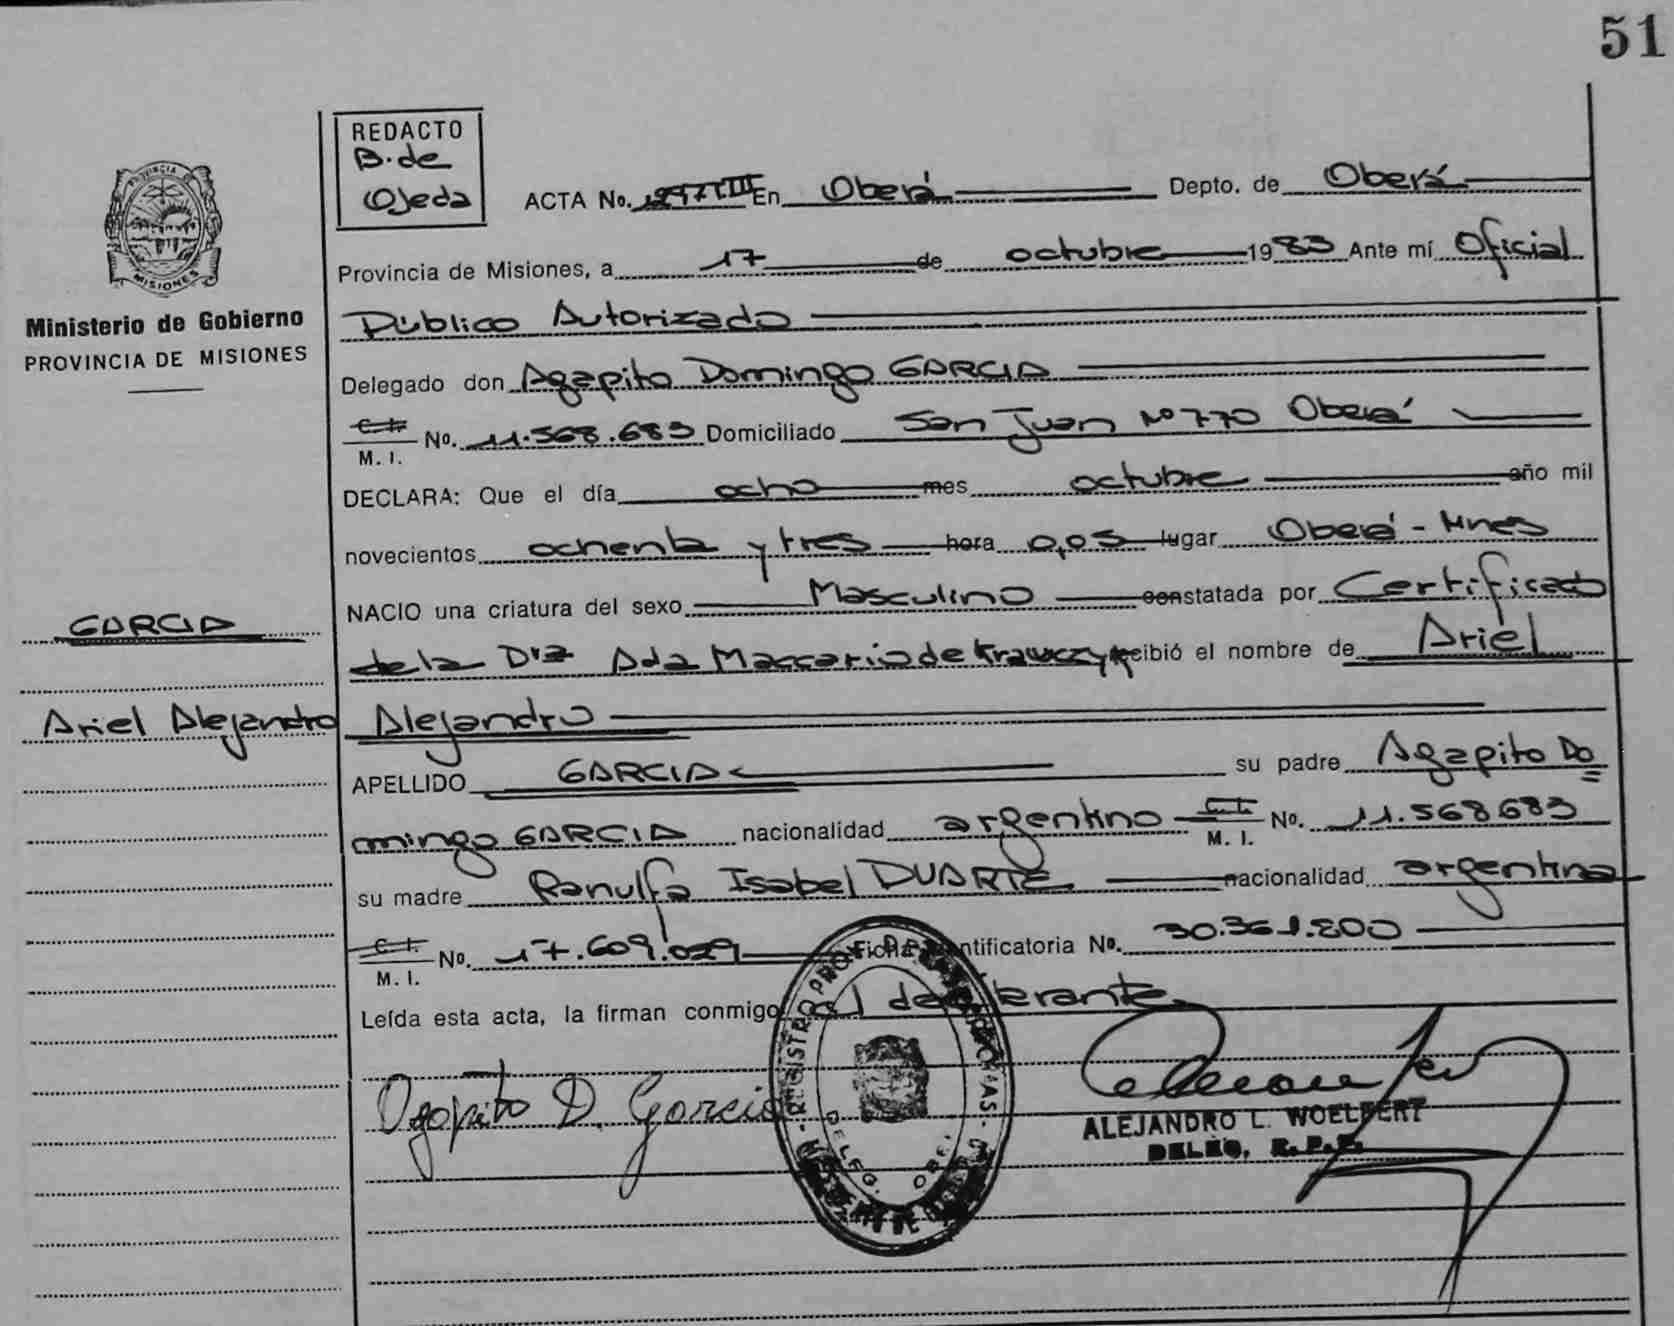 51
REDACTO
B. de
Ojeda
PROVINCIA DE
MISIONES
Ministerio de Gobierno
PROVINCIA DE MISIONES
ACTA No. En Oberá Depto. de Oberá
Provincia de Misiones, a 17 de octubre 1983 Ante mí Oficial
Público Autorizado
Delegado don Agapito Domingo GARCIA
C.I.
M. I. No. 11.568.683 Domiciliado San Juan Nº 770 Oberá
DECLARA: Que el día ocho mes octubre año mil
novecientos ochenta y tres hora 0,05 lugar Oberá - Mnes
NACIO una criatura del sexo Masculino constatada por Certificado
GARCIA
de la Dra Ada Maccario de Krawczyk recibió el nombre de Ariel
Ariel Alejandro
Alejandro
APELLIDO GARCIA su padre Agapito Do
mingo GARCIA nacionalidad argentino C.I.
M. I. No. 11.568.683
su madre Ranulfa Isabel DUARTE nacionalidad argentina
C.I.
M. I. No. 17.609.029 Ficha Identificatoria No. 30.361.800
Leída esta acta, la firman conmigo el declarante
Agapito D. Garcia
ALEJANDRO L. WOELFERT
DELEG. R. P. P.